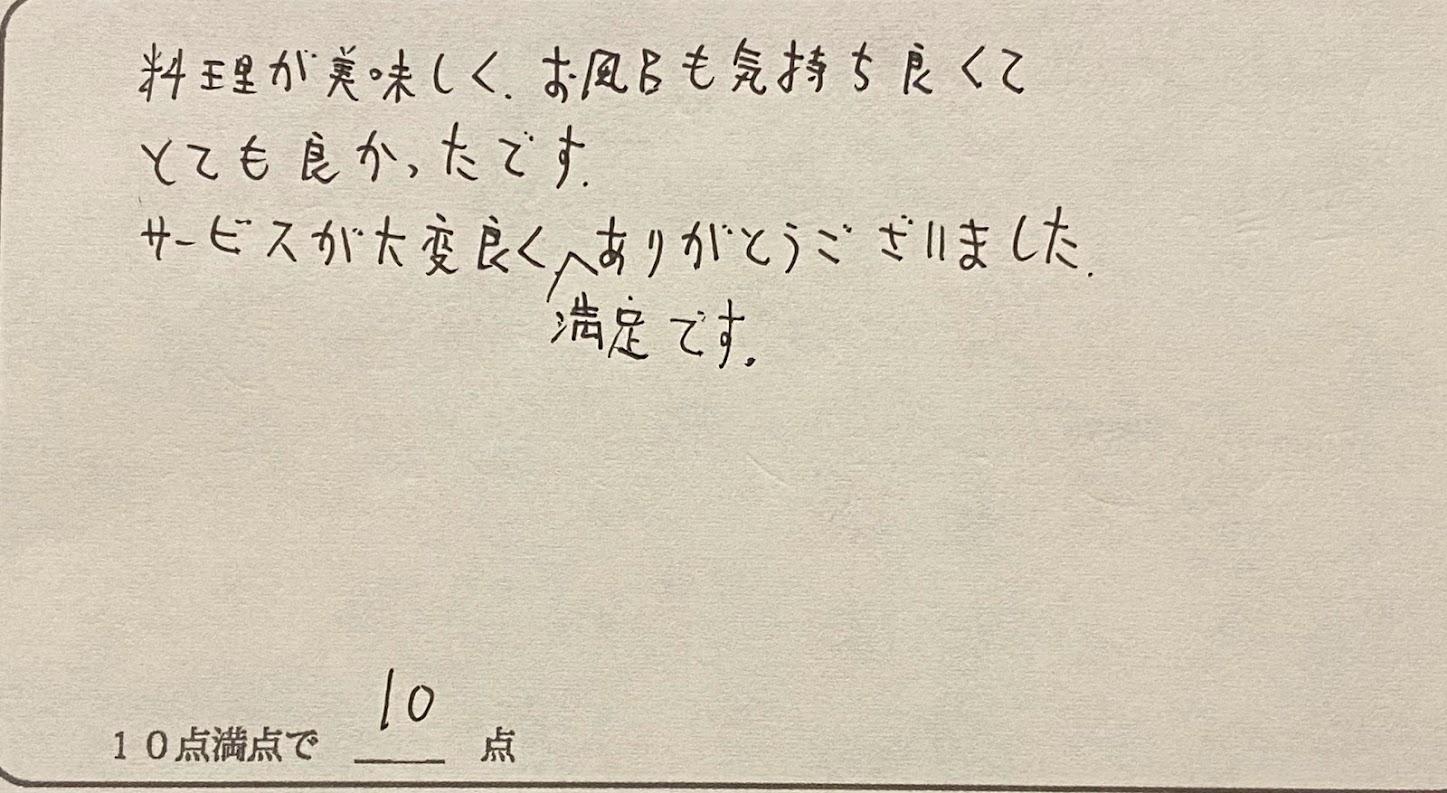 料理が美味しく、お風呂も気持ち良くて
とても良かったです.
サービスが大変良くありがとうございました.
満足です。
10
10点満点で 点